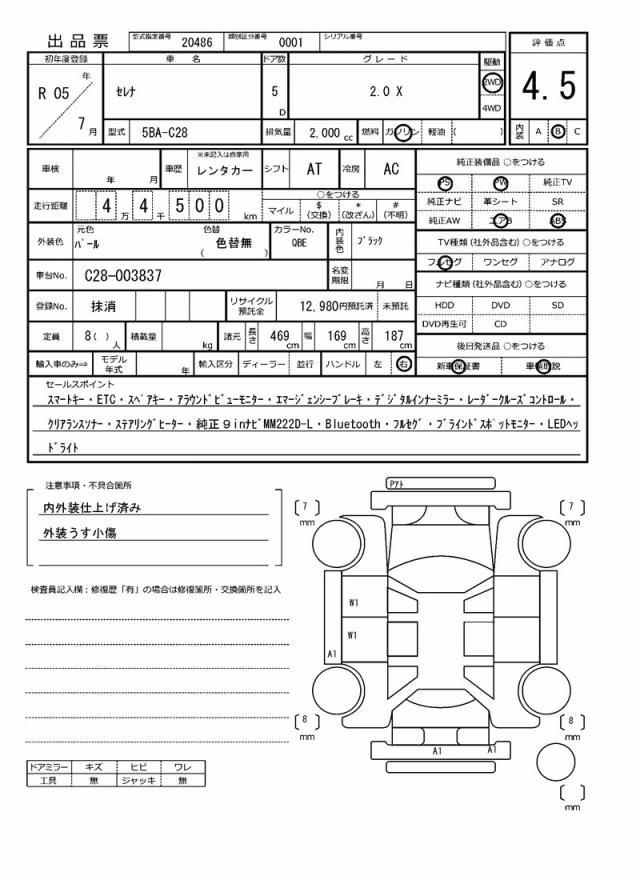 出品票 型式指定番号 20486 類別区分番号 0001 シリアル番号
評価点
4.5
内装 A B C
初年度登録 車名 ドア数 グレード 駆動
R 05 年 7 月 セレナ 5 D 2.0 X 2WD 4WD
型式 5BA-C28 排気量 2,000 cc 燃料 ガソリン 軽油 ( )
車検 年 月 車歴 ※未記入は自家用 レンタカー シフト AT 冷房 AC
走行距離 4 万 4 千 5 0 0 km ○をつける
マイル $ (交換) * (改ざん) # (不明)
外装色 元色 パール 色替 ( 色替無 ) カラーNo. QBE 内装色 ブラック
車台No. C28-003837 名変期限 月 日
登録No. 抹消 リサイクル預託金 12,980円預託済 未預託
定員 8( )人 積載量 kg 諸元 長さ 469 cm 幅 169 cm 高さ 187 cm
輸入車のみ⇒ モデル年式 年 輸入区分 ディーラー・並行 ハンドル 左・右
純正装備品 ○をつける
PS PW 純正TV
純正ナビ 革シート SR
純正AW エアB ABS
TV種類 (社外品含む) ○をつける
フルセグ ワンセグ アナログ
ナビ種類 (社外品含む) ○をつける
HDD DVD SD
DVD再生可 CD
後日発送品 ○をつける
新車保証書 車輌取説
セールスポイント
スマートキー・ETC・スペアキー・アラウンドビューモニター・エマージェンシーブレーキ・デジタルインナーミラー・レーダークルーズコントロール・
クリアランスソナー・ステアリングヒーター・純正９inナビMM222D-L・Bluetooth・フルセグ・ブラインドスポットモニター・LEDヘッ
ドライト
注意事項・不具合箇所
内外装仕上げ済み
外装うす小傷
検査員記入欄：修復歴「有」の場合は修復箇所・交換箇所を記入
ドアミラー キズ ヒビ ワレ
工具 無 ジャッキ 無
Pアト
7 mm 7 mm
W1
W1
A1
8 mm 8 mm
A1 A1
mm